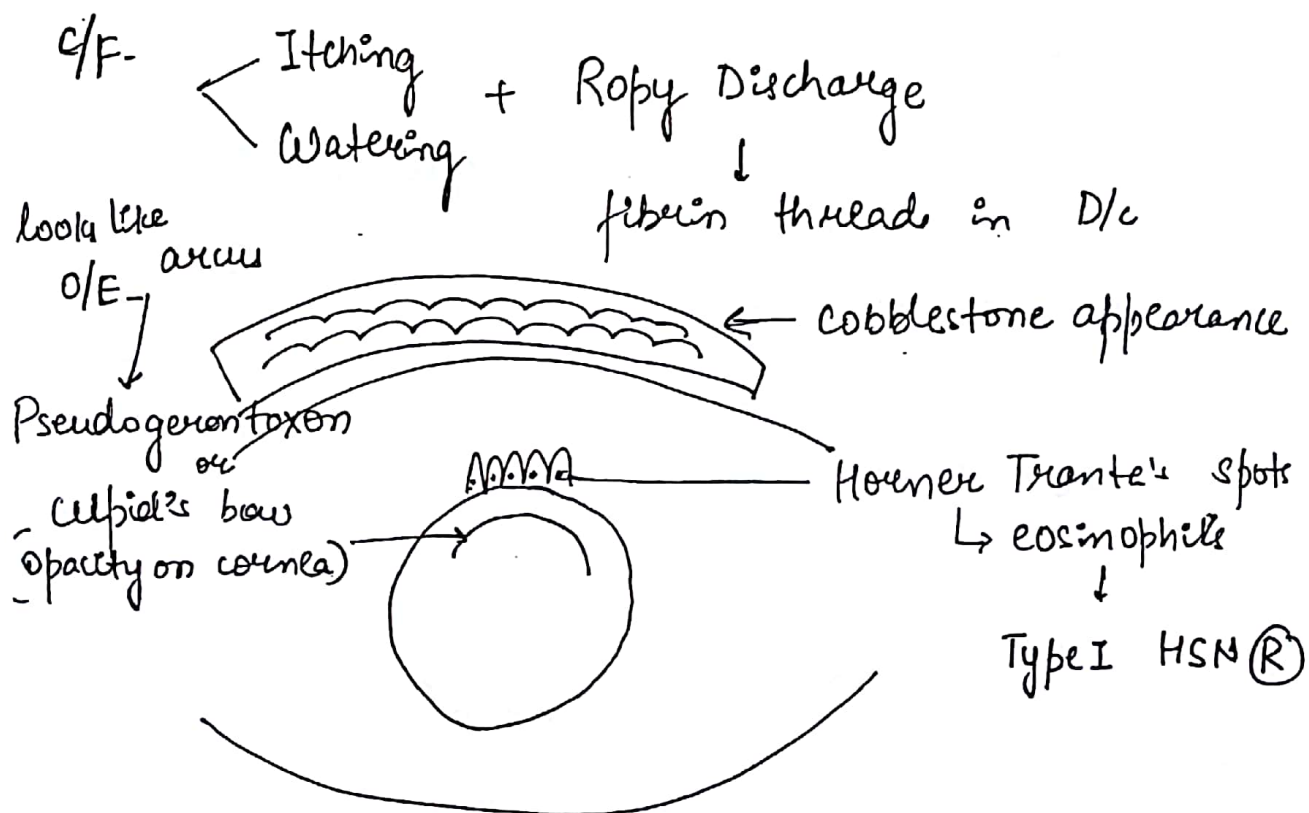 C/F-
Itching
Watering
+ Ropy Discharge
↓
fibrin threads in D/c
look like
arcus
O/E-
cobblestone appearance
Pseudogerontoxon
or
cupid's bow
(opacity on cornea)
Horner Trante's spots
↳ eosinophils
↓
Type I HSN Ⓡ